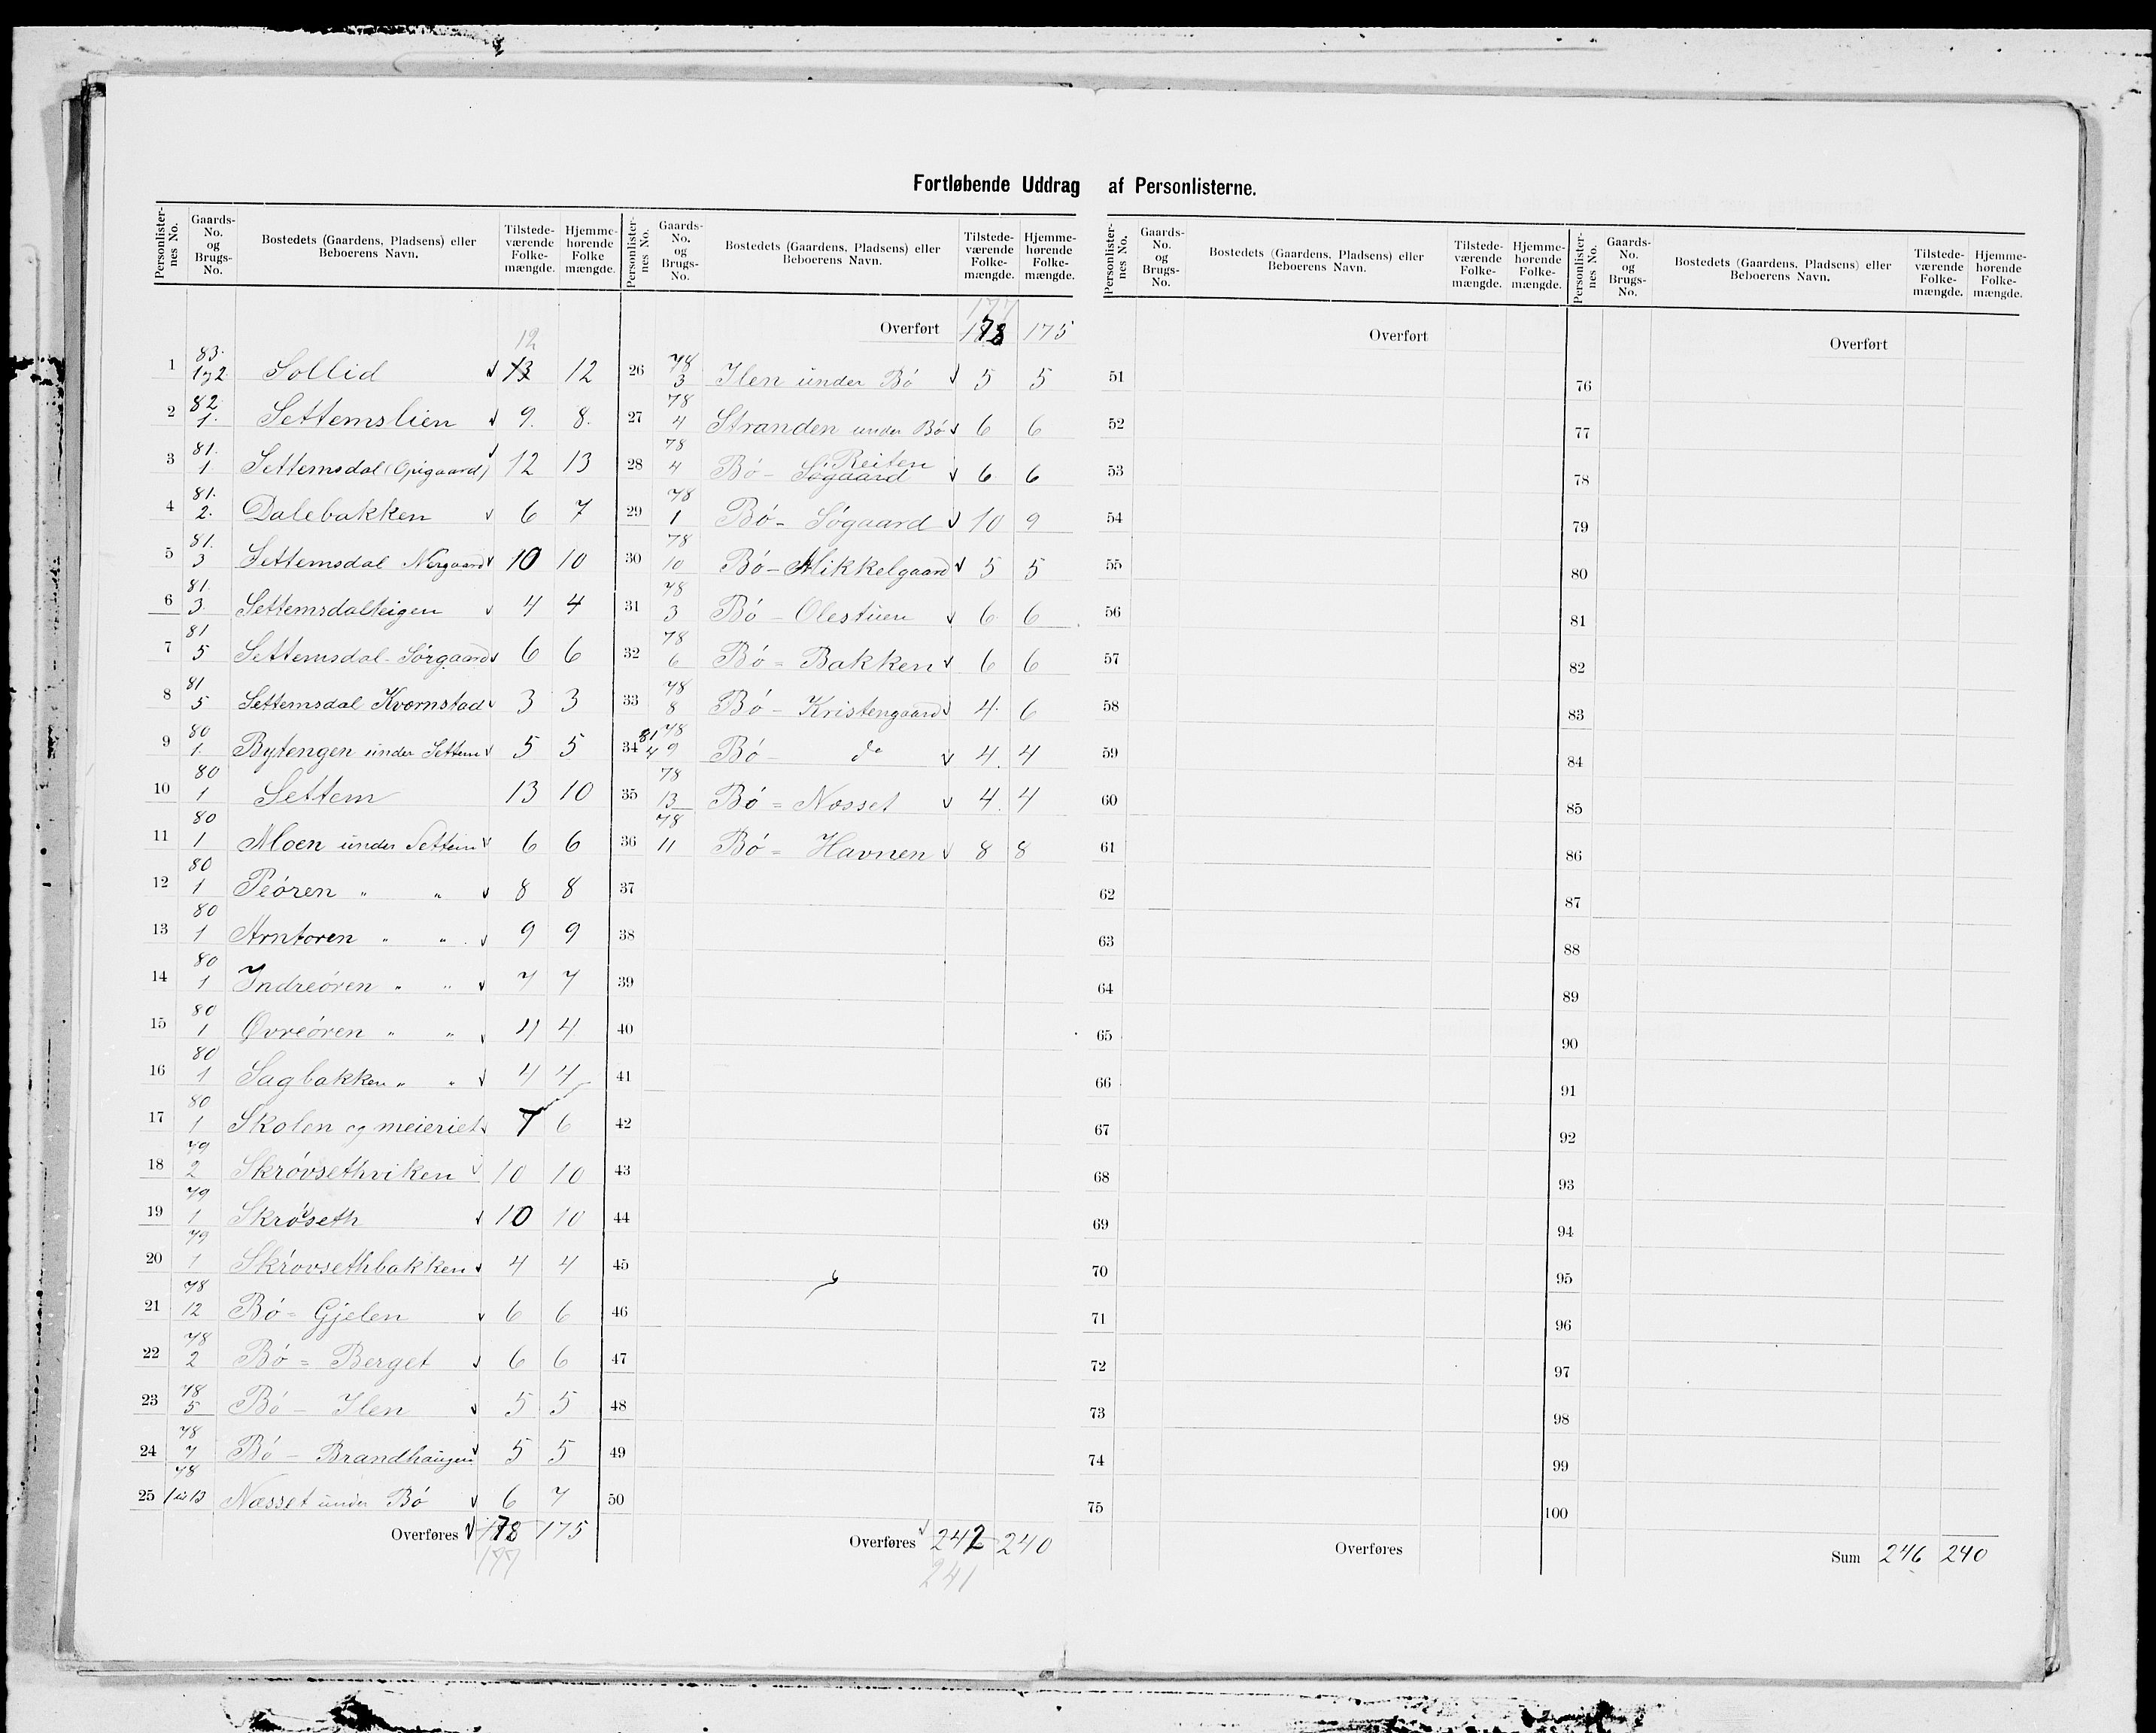 Fortløbende Uddrag af Personlisterne.
Personlisternes No. Gaards-No. og Brugs-No. Bostedets (Gaardens, Pladsens) eller Beboerens Navn. Tilstedeværende Folkemængde. Hjemmehørende Folke mængde.
12
1 83. 1 og 2 Sollid 13 12
2 82. 1. Settemslien 9. 8.
3 81. 1. Settemsdal (Opigaard) 12 13
4 81. 2. Dalebakken 6 7
5 81. 3 Settemsdal Nergaard 10 10
6 81. 3. Settemsdalteigen 4 4
7 81 5 Settemsdal-Sörgaard 6 6
8 81 5 Settemsdal Kvornstad 3 3
9 80 1. Bytengen under Settem 5 5
10 80 1 Settem 13 10
11 80 1 Moen under Settem 6 6
12 80 1 Peóren " " 8 8
13 80 1 Arntoren " " 9 9
14 80 1 Indreóren " " 7 7
15 80 1 Øvreóren " " 4 4
16 80 1 Sagbakken " " 4 4
17 80 1 Skolen og meieriet 7 6
18 79 2 Skróvsethviken 10 10
19 79 1 Skróvseth 10 10
20 79 1 Skróvsethbakken 4 4
21 78 12 Bó = Gjelen 6 6
22 78 2 Bó = Berget 6 6
23 78 5 Bó - Ilen 5 5
24 78 7 Bó - Brandhaugen 5 5
25 78 Næsset under Bó 6 7
Overføres 178 175
177
Personlisternes No. Gaards-No. og Brugs-No. Bostedets (Gaardens, Pladsens) eller Beboerens Navn. Tilstedeværende Folkemængde. Hjemmehørende Folkemængde.
177
Overført 178 175
26 78 3 Ilen under Bó 5 5
27 78 4 Stranden under Bó 6 6
28 78 4 Bó - Sógaard Reiten 6 6
29 78 1 Bó - Sógaard 10 9
30 78 10 Bó - Mikkelgaard 5 5
31 78 3 Bó - Olestuen 6 6
32 78 6 Bó = Bakken 6 6
33 78 8 Bó - Kristengaard 4 6
34 81 4 78 9 Bó - do 4. 4
35 78 13 Bó = Næsset 4. 4
36 78 11 Bó = Havnen 8 8
37
38
39
40
41
42
43
44
45
46
47
48
49
50
Overføres 242 240
241
Personlisternes No. Gaards-No. og Brugs-No. Bostedets (Gaardens, Pladsens) eller Beboerens Navn. Tilstedeværende Folkemængde. Hjemmehørende Folkemængde.
Overført
51
52
53
54
55
56
57
58
59
60
61
62
63
64
65
66
67
68
69
70
71
72
73
74
75
Overføres
Personlisternes No. Gaards-No. og Brugs-No. Bostedets (Gaardens, Pladsens) eller Beboerens Navn. Tilstedeværende Folkemængde. Hjemmehørende Folkemængde.
Overført
76
77
78
79
80
81
82
83
84
85
86
87
88
89
90
91
92
93
94
95
96
97
98
99
100
Sum 246 240